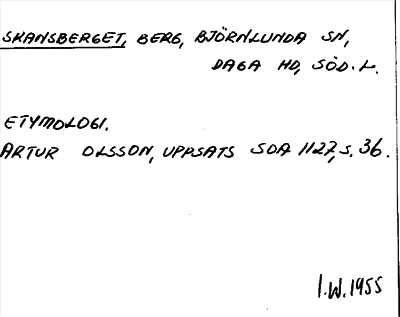 SKANSBERGET, BERG, BJÖRNLUNDA SN,
DAGA HD, SÖD.L.
ETYMOLOGI.
ARTUR OLSSON, UPPSATS SOA 1127, S. 36.
I.W. 1955